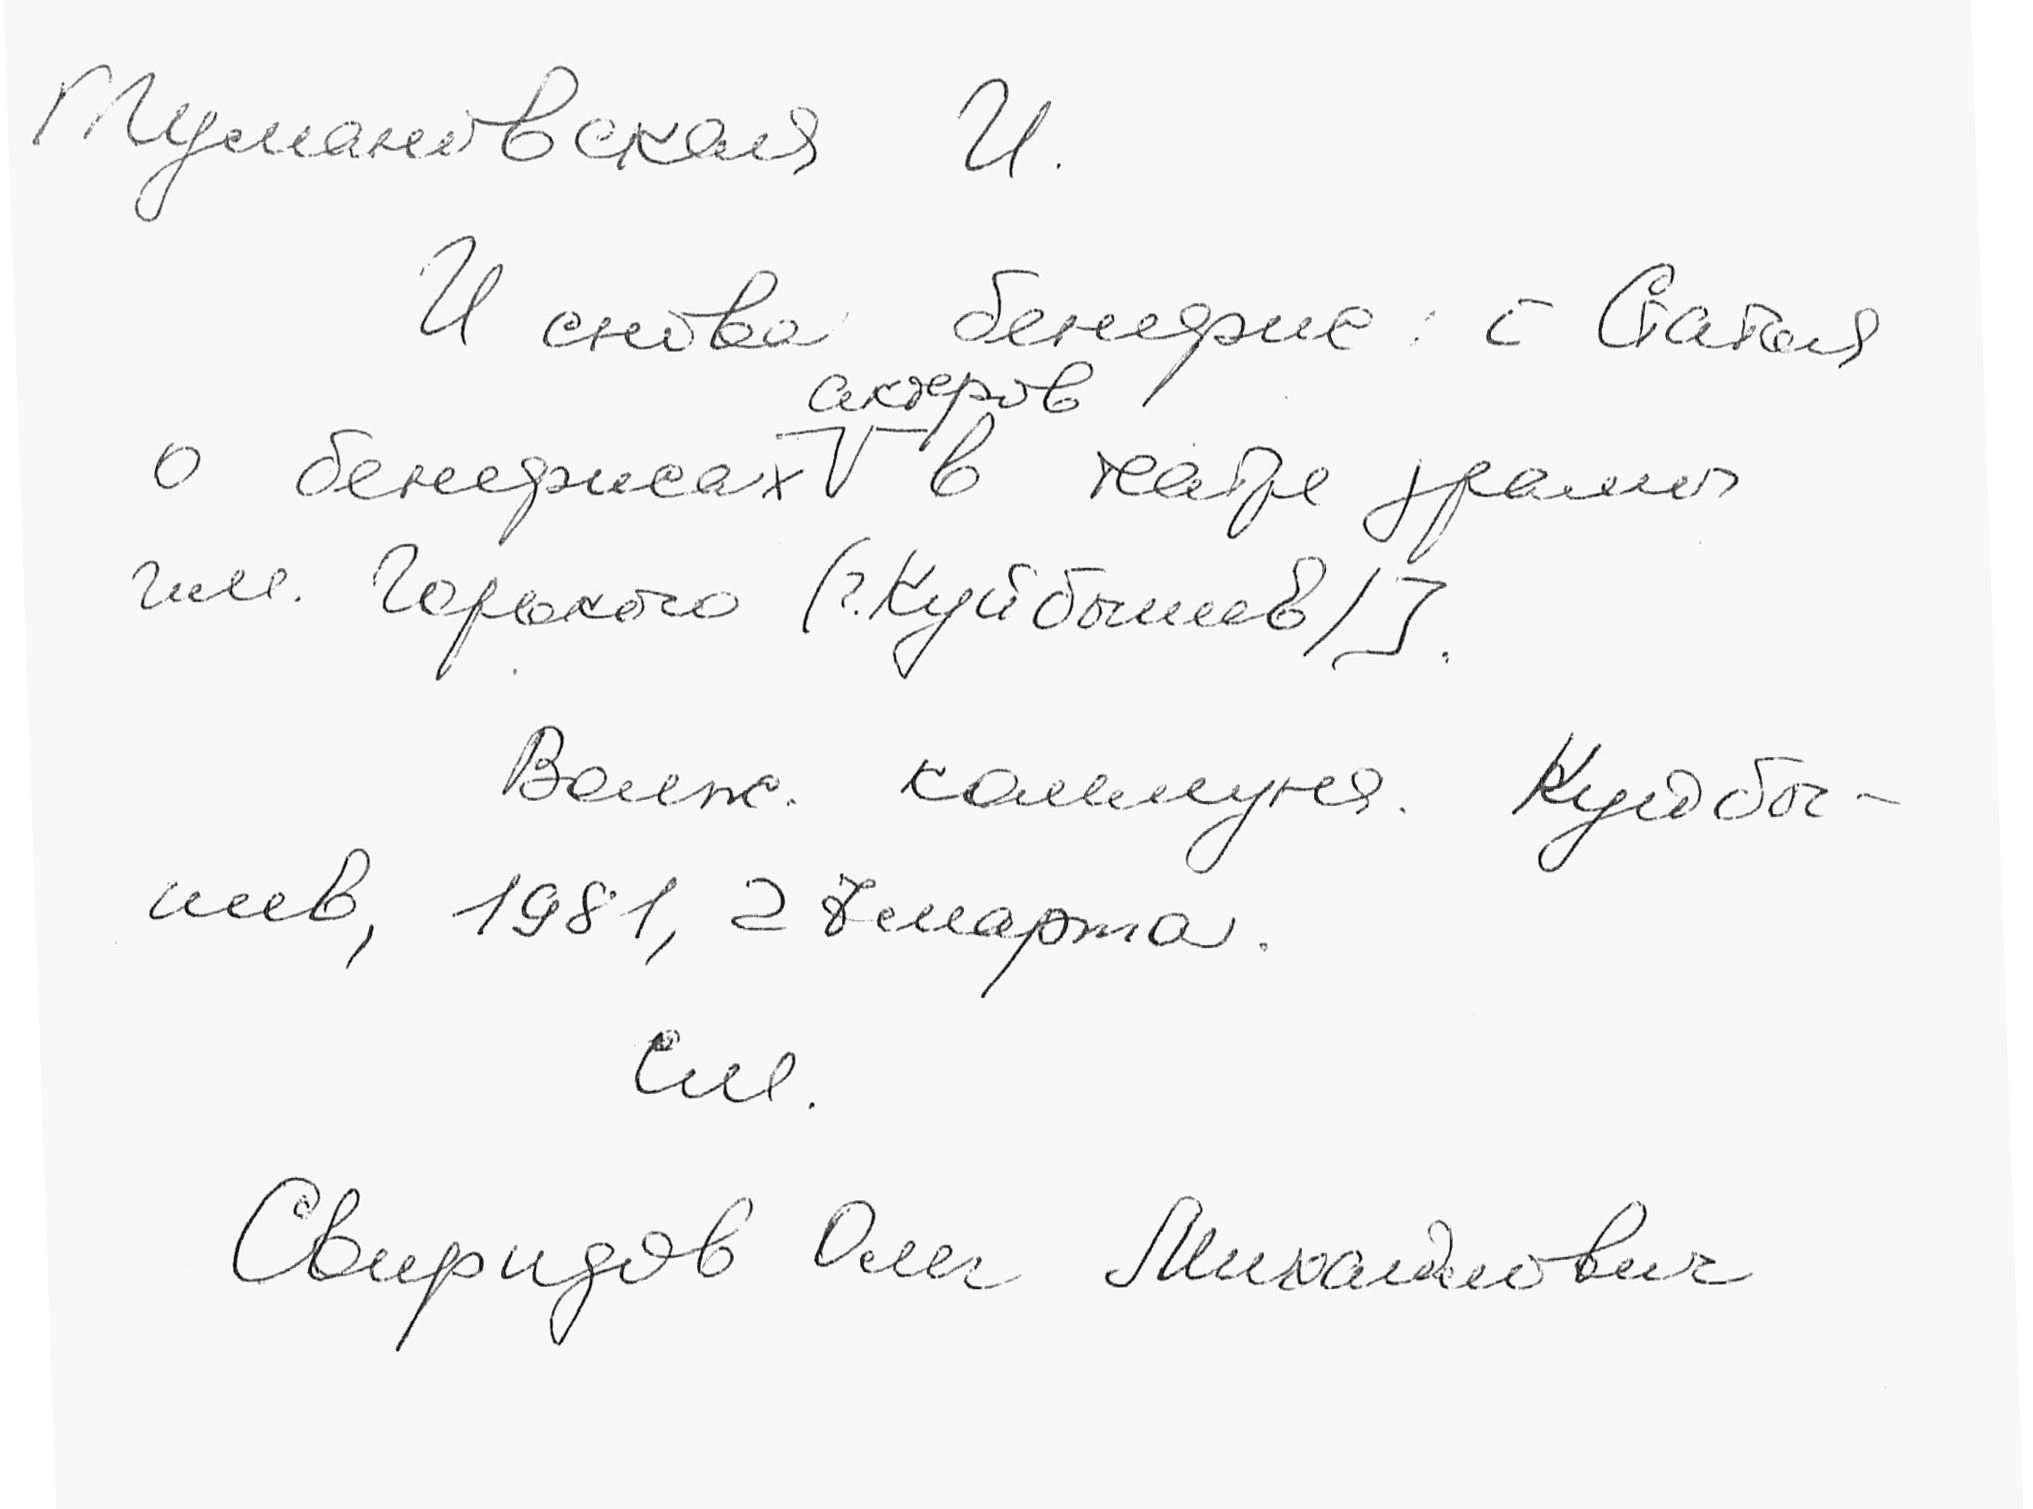 Тумановская И.
И снова бенефис: [Статья
актеров
о бенефисах V в театре драмы
им. Горького (г. Куйбышев)].
Волж. коммуна. Куйбы-
шев, 1981, 28 марта.
См.
Свиридов Олег Михайлович